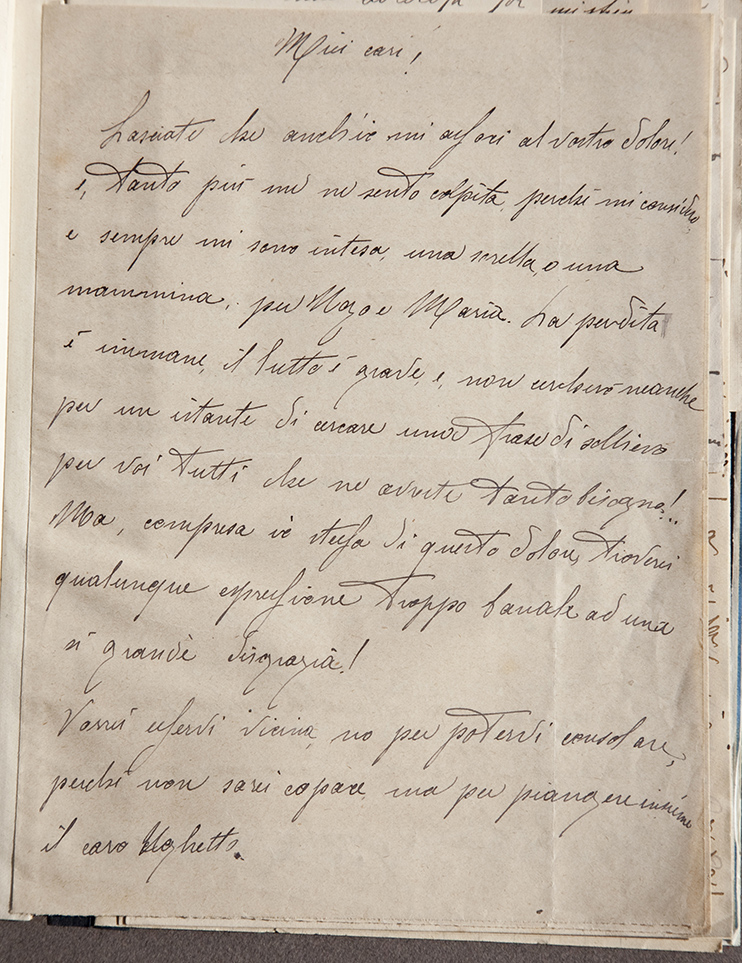 Miei cari!
Lasciate che anch'io mi associ al vostro dolore!
e, tanto più me ne sento colpita, perchè mi considero,
e sempre mi sono intesa, una sorella, o una
mammina, per Ugo e Maria. La perdita
è immane, il lutto è grave, e, non cercherò neanche
per un istante di cercare una frase di sollievo
per voi tutti che ne avete tanto bisogno!..
Ma, compresa io stessa di questo dolore, troverei
qualunque espressione troppo banale ad una
sì grande disgrazia!
Vorrei esservi vicina, no per potervi consolare,
perchè non sarei capace, ma per piangere insieme
il caro Ughetto.